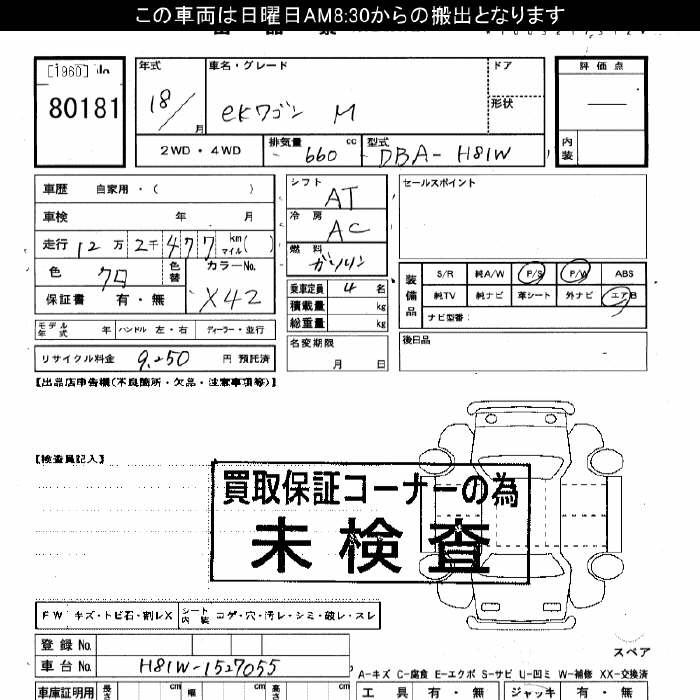 この車両は日曜日AM8:30からの搬出となります
[1960] No
80181
年式 18/ 月
車名・グレード
ekワゴン M
ドア
形状
評価点
—
内装
2WD・4WD
排気量 660 cc
型式 DBA-H81W
車歴 自家用・( )
車検 年 月
走行 12万 2千 477 km マイル( )
色 クロ 色替
カラーNo. X42
保証書 有・無
シフト AT
冷房 AC
燃料 ガソリン
乗車定員 4 名
積載量 kg
総重量 kg
名変期限 月 日
セールスポイント
装備品
S/R 純A/W P/S P/W ABS
純TV 純ナビ 革シート 外ナビ エアB
ナビ型番:
後日品
モデル年式 年 ハンドル 左・右 ディーラー・並行
リサイクル料金 9,250 円 預託済
【出品店申告欄(不良箇所・欠品・注意事項等)】
【検査員記入】
買取保証コーナーの為
未検査
FW キズ・トビ石・割レX
シート内装 コゲ・穴・汚レ・シミ・破レ・スレ
登録 No.
車台 No. H81W-1527055
スペア
A-キズ C-腐食 E-エクボ S-サビ U-凹ミ W-補修 XX-交換済
車庫証明用 長さ cm 幅 cm 高さ cm
工具 有・無 ジャッキ 有・無